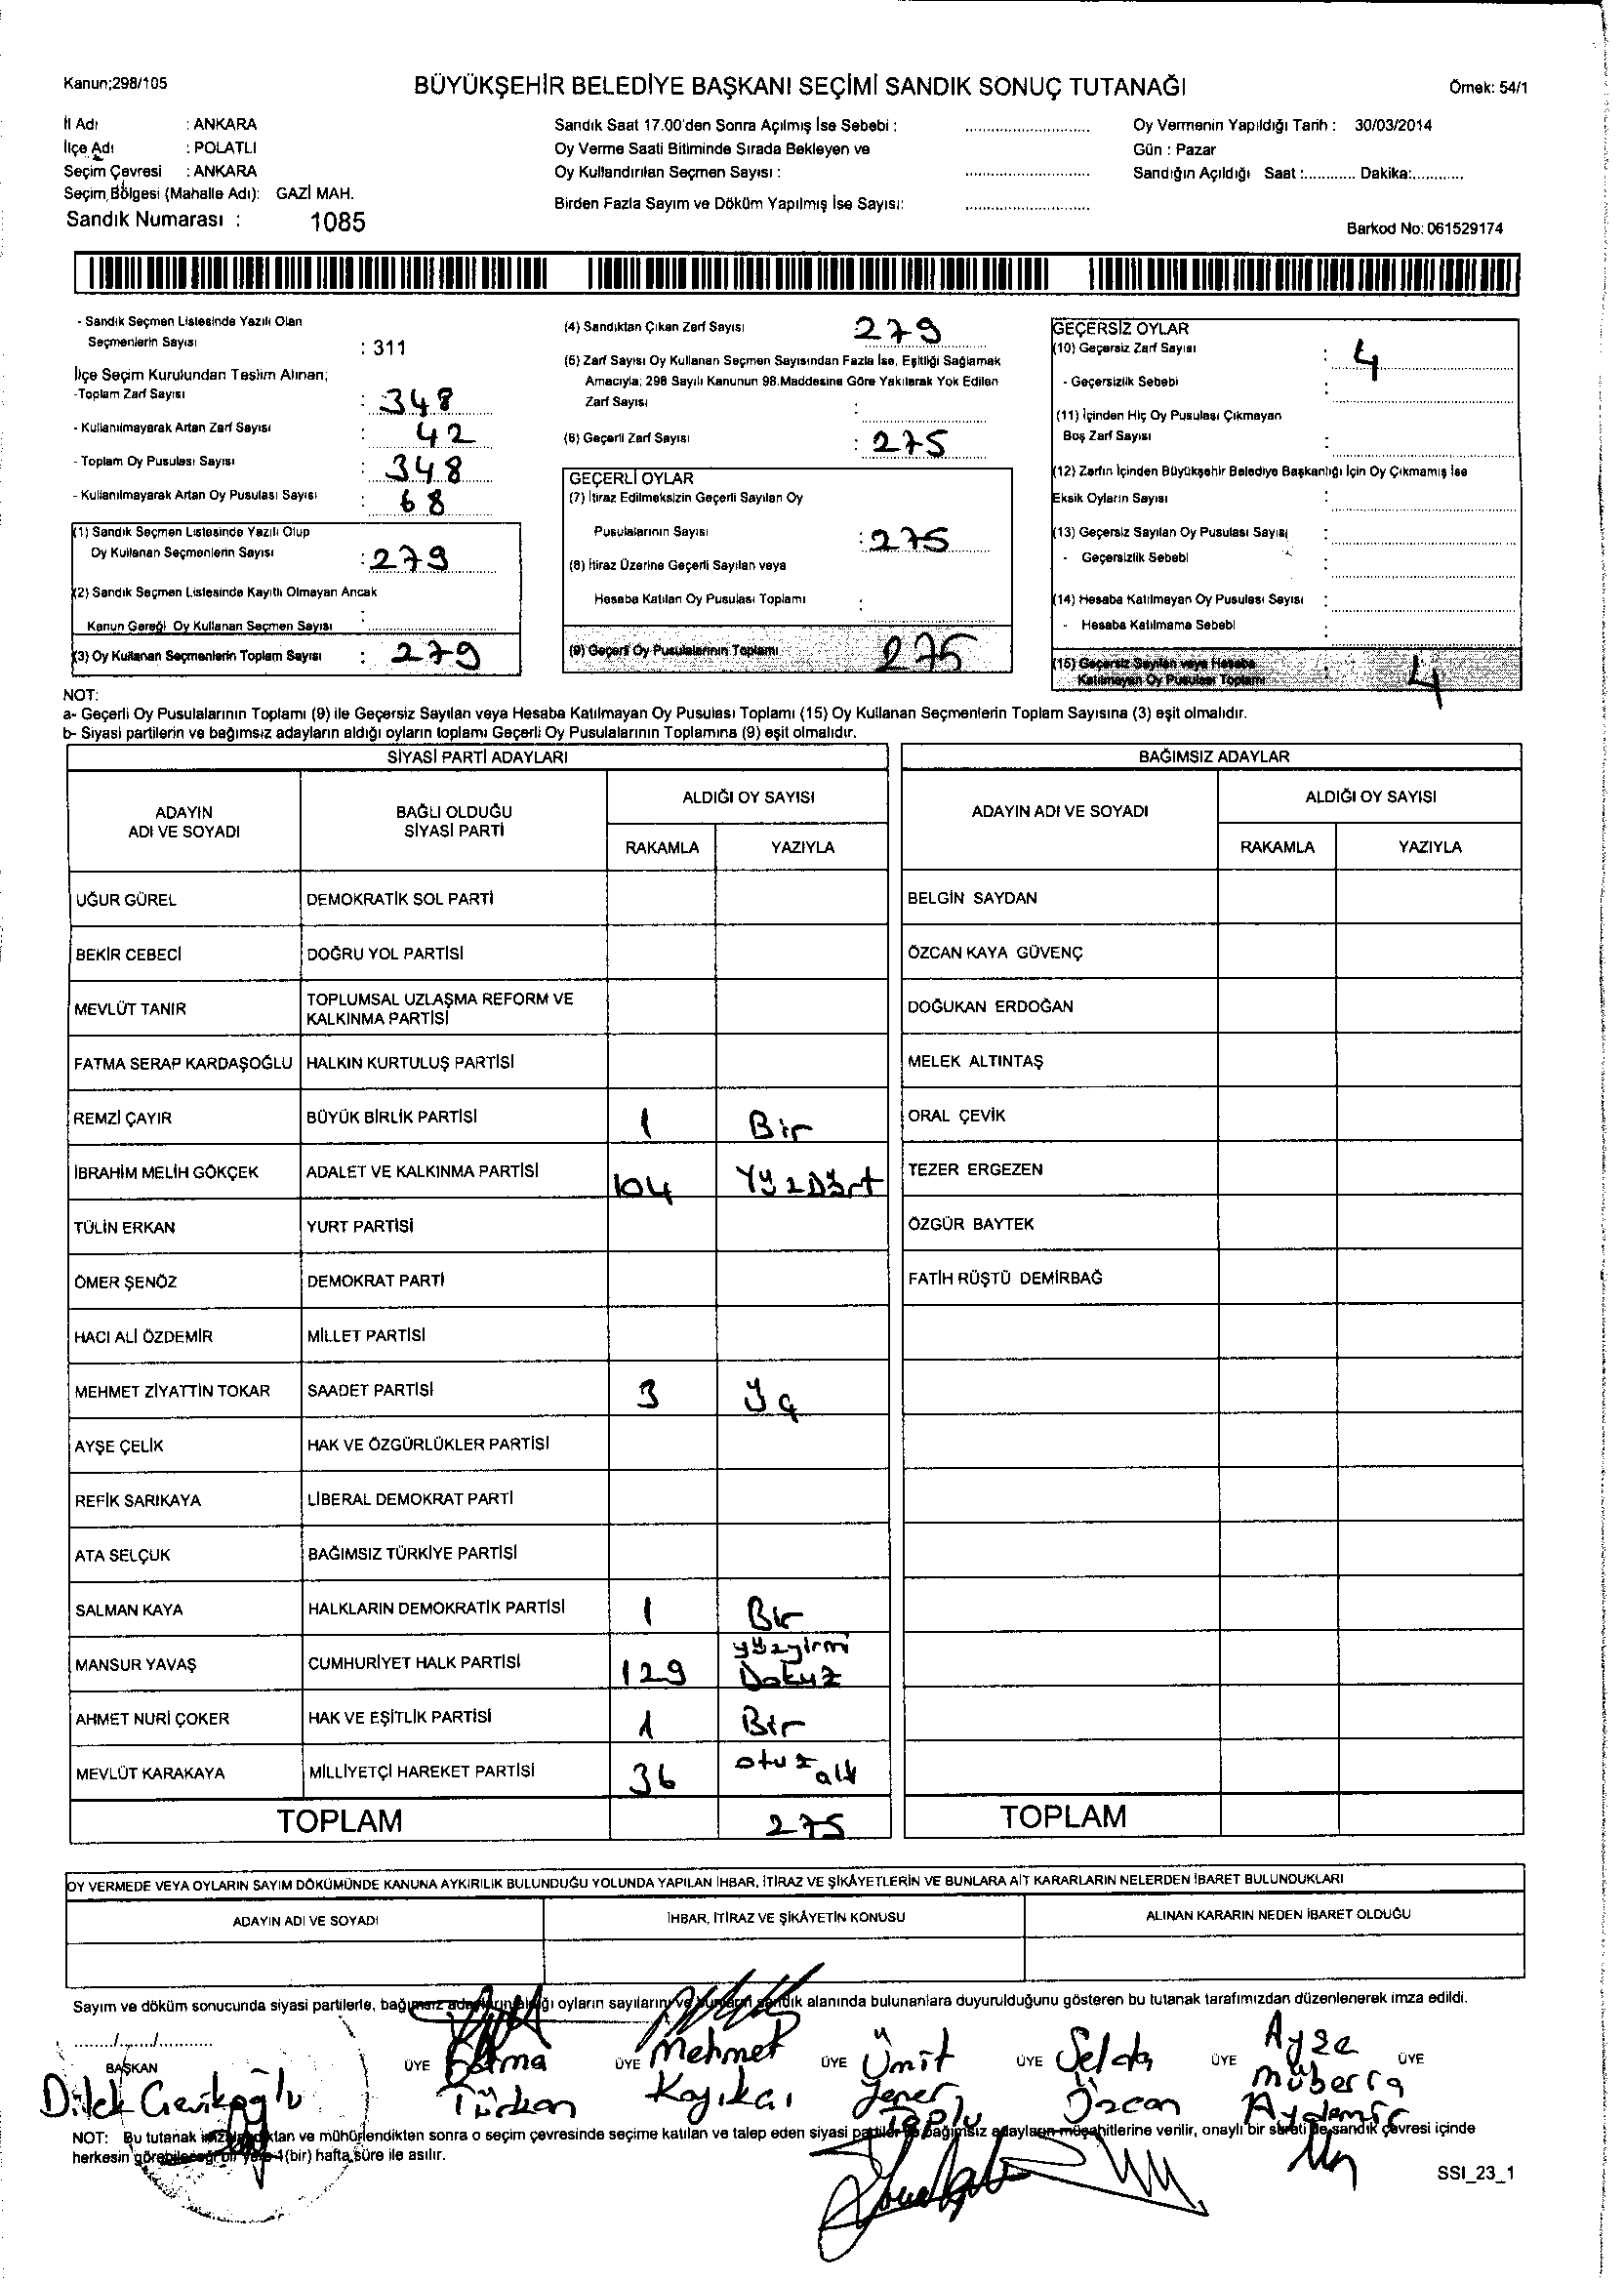 Kanun;298/105
BÜYÜKŞEHİR BELEDİYE BAŞKANI SEÇİMİ SANDIK SONUÇ TUTANAĞI
Örnek: 54/1
İl Adı : ANKARA
İlçe Adı : POLATLI
Seçim Çevresi : ANKARA
Seçim Bölgesi (Mahalle Adı): GAZİ MAH.
Sandık Numarası : 1085
Sandık Saat 17.00'den Sonra Açılmış İse Sebebi :
Oy Verme Saati Bitiminde Sırada Bekleyen ve
Oy Kullandırılan Seçmen Sayısı :
Birden Fazla Sayım ve Döküm Yapılmış İse Sayısı:
Oy Vermenin Yapıldığı Tarih : 30/03/2014
Gün : Pazar
Sandığın Açıldığı Saat :............ Dakika:............
Barkod No: 061529174
- Sandık Seçmen Listesinde Yazılı Olan
Seçmenlerin Sayısı : 311
İlçe Seçim Kurulundan Teslim Alınan;
-Toplam Zarf Sayısı : 348
- Kullanılmayarak Artan Zarf Sayısı : 42
- Toplam Oy Pusulası Sayısı : 348
- Kullanılmayarak Artan Oy Pusulası Sayısı : 68
(1) Sandık Seçmen Listesinde Yazılı Olup
Oy Kullanan Seçmenlerin Sayısı : 279
(2) Sandık Seçmen Listesinde Kayıtlı Olmayan Ancak
Kanun Gereği Oy Kullanan Seçmen Sayısı :
(3) Oy Kullanan Seçmenlerin Toplam Sayısı : 279
(4) Sandıktan Çıkan Zarf Sayısı 279
(5) Zarf Sayısı Oy Kullanan Seçmen Sayısından Fazla İse, Eşitliği Sağlamak
Amacıyla; 298 Sayılı Kanunun 98.Maddesine Göre Yakılarak Yok Edilen
Zarf Sayısı :
(6) Geçerli Zarf Sayısı : 275
GEÇERLİ OYLAR
(7) İtiraz Edilmeksizin Geçerli Sayılan Oy
Pusulalarının Sayısı : 275
(8) İtiraz Üzerine Geçerli Sayılan veya
Hesaba Katılan Oy Pusulası Toplamı :
(9) Geçerli Oy Pusulalarının Toplamı 275
GEÇERSİZ OYLAR
(10) Geçersiz Zarf Sayısı : 4
- Geçersizlik Sebebi :
(11) İçinden Hiç Oy Pusulası Çıkmayan
Boş Zarf Sayısı :
(12) Zarfın İçinden Büyükşehir Belediye Başkanlığı İçin Oy Çıkmamış İse
Eksik Oyların Sayısı :
(13) Geçersiz Sayılan Oy Pusulası Sayısı :
- Geçersizlik Sebebi :
(14) Hesaba Katılmayan Oy Pusulası Sayısı :
- Hesaba Katılmama Sebebi :
(15) Geçersiz Sayılan veya Hesaba
Katılmayan Oy Pusulası Toplamı : 4
NOT:
a- Geçerli Oy Pusulalarının Toplamı (9) ile Geçersiz Sayılan veya Hesaba Katılmayan Oy Pusulası Toplamı (15) Oy Kullanan Seçmenlerin Toplam Sayısına (3) eşit olmalıdır.
b- Siyasi partilerin ve bağımsız adayların aldığı oyların toplamı Geçerli Oy Pusulalarının Toplamına (9) eşit olmalıdır.
SİYASİ PARTİ ADAYLARI
ADAYIN ADI VE SOYADI
BAĞLI OLDUĞU SİYASİ PARTİ
ALDIĞI OY SAYISI
RAKAMLA YAZIYLA
UĞUR GÜREL DEMOKRATİK SOL PARTİ
BEKİR CEBECİ DOĞRU YOL PARTİSİ
MEVLÜT TANIR TOPLUMSAL UZLAŞMA REFORM VE KALKINMA PARTİSİ
FATMA SERAP KARDAŞOĞLU HALKIN KURTULUŞ PARTİSİ
REMZİ ÇAYIR BÜYÜK BİRLİK PARTİSİ 1 Bir
İBRAHİM MELİH GÖKÇEK ADALET VE KALKINMA PARTİSİ 104 YüzDört
TÜLİN ERKAN YURT PARTİSİ
ÖMER ŞENÖZ DEMOKRAT PARTİ
HACI ALİ ÖZDEMİR MİLLET PARTİSİ
MEHMET ZİYATTİN TOKAR SAADET PARTİSİ 3 üç
AYŞE ÇELİK HAK VE ÖZGÜRLÜKLER PARTİSİ
REFİK SARIKAYA LİBERAL DEMOKRAT PARTİ
ATA SELÇUK BAĞIMSIZ TÜRKİYE PARTİSİ
SALMAN KAYA HALKLARIN DEMOKRATİK PARTİSİ 1 Bir
MANSUR YAVAŞ CUMHURİYET HALK PARTİSİ 129 yüzyirmi Dokuz
AHMET NURİ ÇOKER HAK VE EŞİTLİK PARTİSİ 1 Bir
MEVLÜT KARAKAYA MİLLİYETÇİ HAREKET PARTİSİ 36 otuz altı
TOPLAM 275
BAĞIMSIZ ADAYLAR
ADAYIN ADI VE SOYADI
ALDIĞI OY SAYISI
RAKAMLA YAZIYLA
BELGİN SAYDAN
ÖZCAN KAYA GÜVENÇ
DOĞUKAN ERDOĞAN
MELEK ALTINTAŞ
ORAL ÇEVİK
TEZER ERGEZEN
ÖZGÜR BAYTEK
FATİH RÜŞTÜ DEMİRBAĞ
TOPLAM
OY VERMEDE VEYA OYLARIN SAYIM DÖKÜMÜNDE KANUNA AYKIRILIK BULUNDUĞU YOLUNDA YAPILAN İHBAR, İTİRAZ VE ŞİKÂYETLERİN VE BUNLARA AİT KARARLARIN NELERDEN İBARET BULUNDUKLARI
ADAYIN ADI VE SOYADI
İHBAR, İTİRAZ VE ŞİKÂYETİN KONUSU
ALINAN KARARIN NEDEN İBARET OLDUĞU
Sayım ve döküm sonucunda siyasi partilerle, bağımsız adayların aldığı oyların sayılarını ve bunların sandık alanında bulunanlara duyurulduğunu gösteren bu tutanak tarafımızdan düzenlenerek imza edildi.
....../....../............
BAŞKAN ÜYE ÜYE ÜYE ÜYE ÜYE ÜYE
Dilek Fatma Türkan
Mehmet Kayıkçı
Ümit Yener
Selda Özcan
Ayşe Müberra Aydemir
NOT: Bu tutanak imzalandıktan ve mühürlendikten sonra o seçim çevresinde seçime katılan ve talep eden siyasi partiler ve bağımsız adayların müşahitlerine verilir, onaylı bir sureti de sandık çevresi içinde
herkesin görebileceği bir yere 1(bir) hafta süre ile asılır.
SSI_23_1